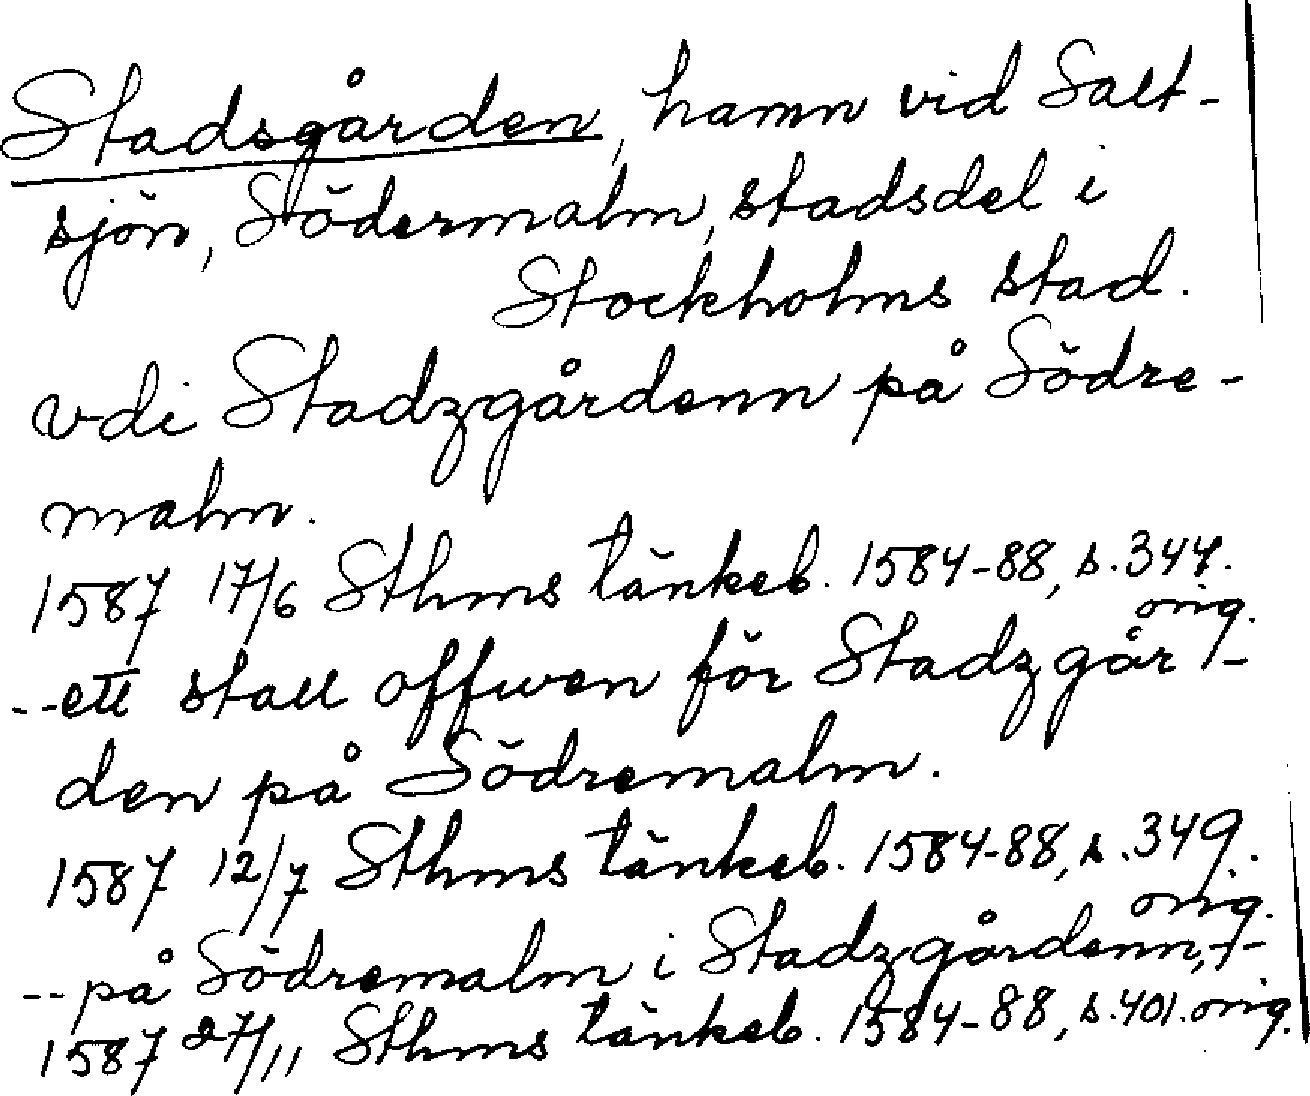 Stadsgården, hamn vid Salt-
sjön, Södermalm, stadsdel i
Stockholms stad.
vdi Stadzgårdenn på Södre-
malm.
1587 17/6 Sthms tänkeb. 1584-88, s. 344.
orig.
--ett stall offwen för Stadzgår-
den på Södremalm.
1587 12/7 Sthms tänkeb. 1584-88, s. 349.
orig.
--på Södremalm i Stadzgårdenn,--
1587 27/11 Sthms tänkeb. 1584-88, s. 401. orig.